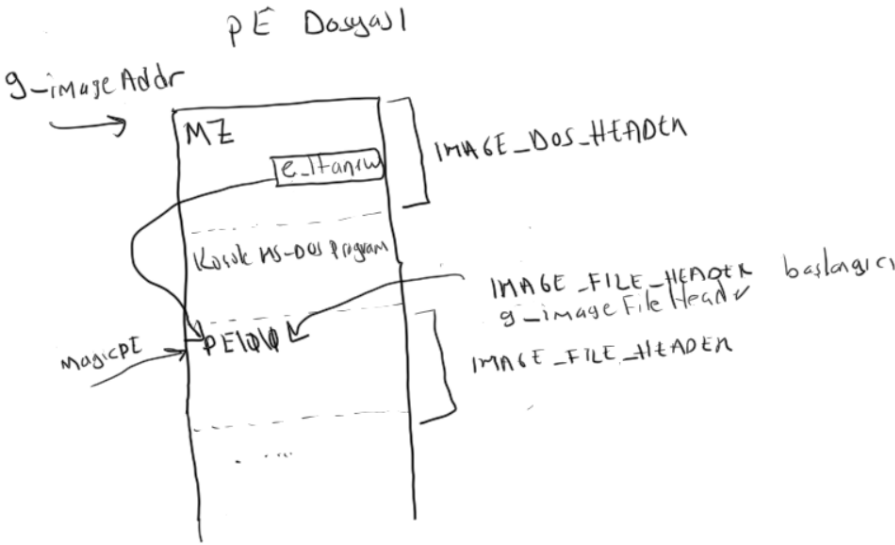 PE Dosyası
g_imageAddr
MZ
e_lfanew
IMAGE_DOS_HEADER
MS-DOS Program
IMAGE_FILE_HEADER başlangıcı
g_imageFileHeader
magicPE
PE\0\0
IMAGE_FILE_HEADER
.....